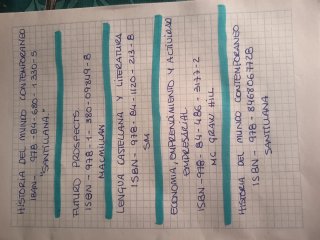 HISTORIA DEL MUNDO CONTEMPORANEO
ISBN - 978-84-680-1330-5
"SANTILLANA"
FUTURO PROSPECTS
ISBN - 978-1-380-09849-8
MACMILLAN
LENGUA CASTELLANA Y LITERATURA
ISBN - 978-84-1120-213-8
SM
ECONOMIA, EMPRENDIMIENTO Y ACTIVIDAD
EMPRESARIAL
ISBN - 978-84-486-3177-2
MC GRAW HILL
HISTORIA DEL MUNDO CONTEMPORANEO
ISBN - 978-8468067728
SANTILLANA